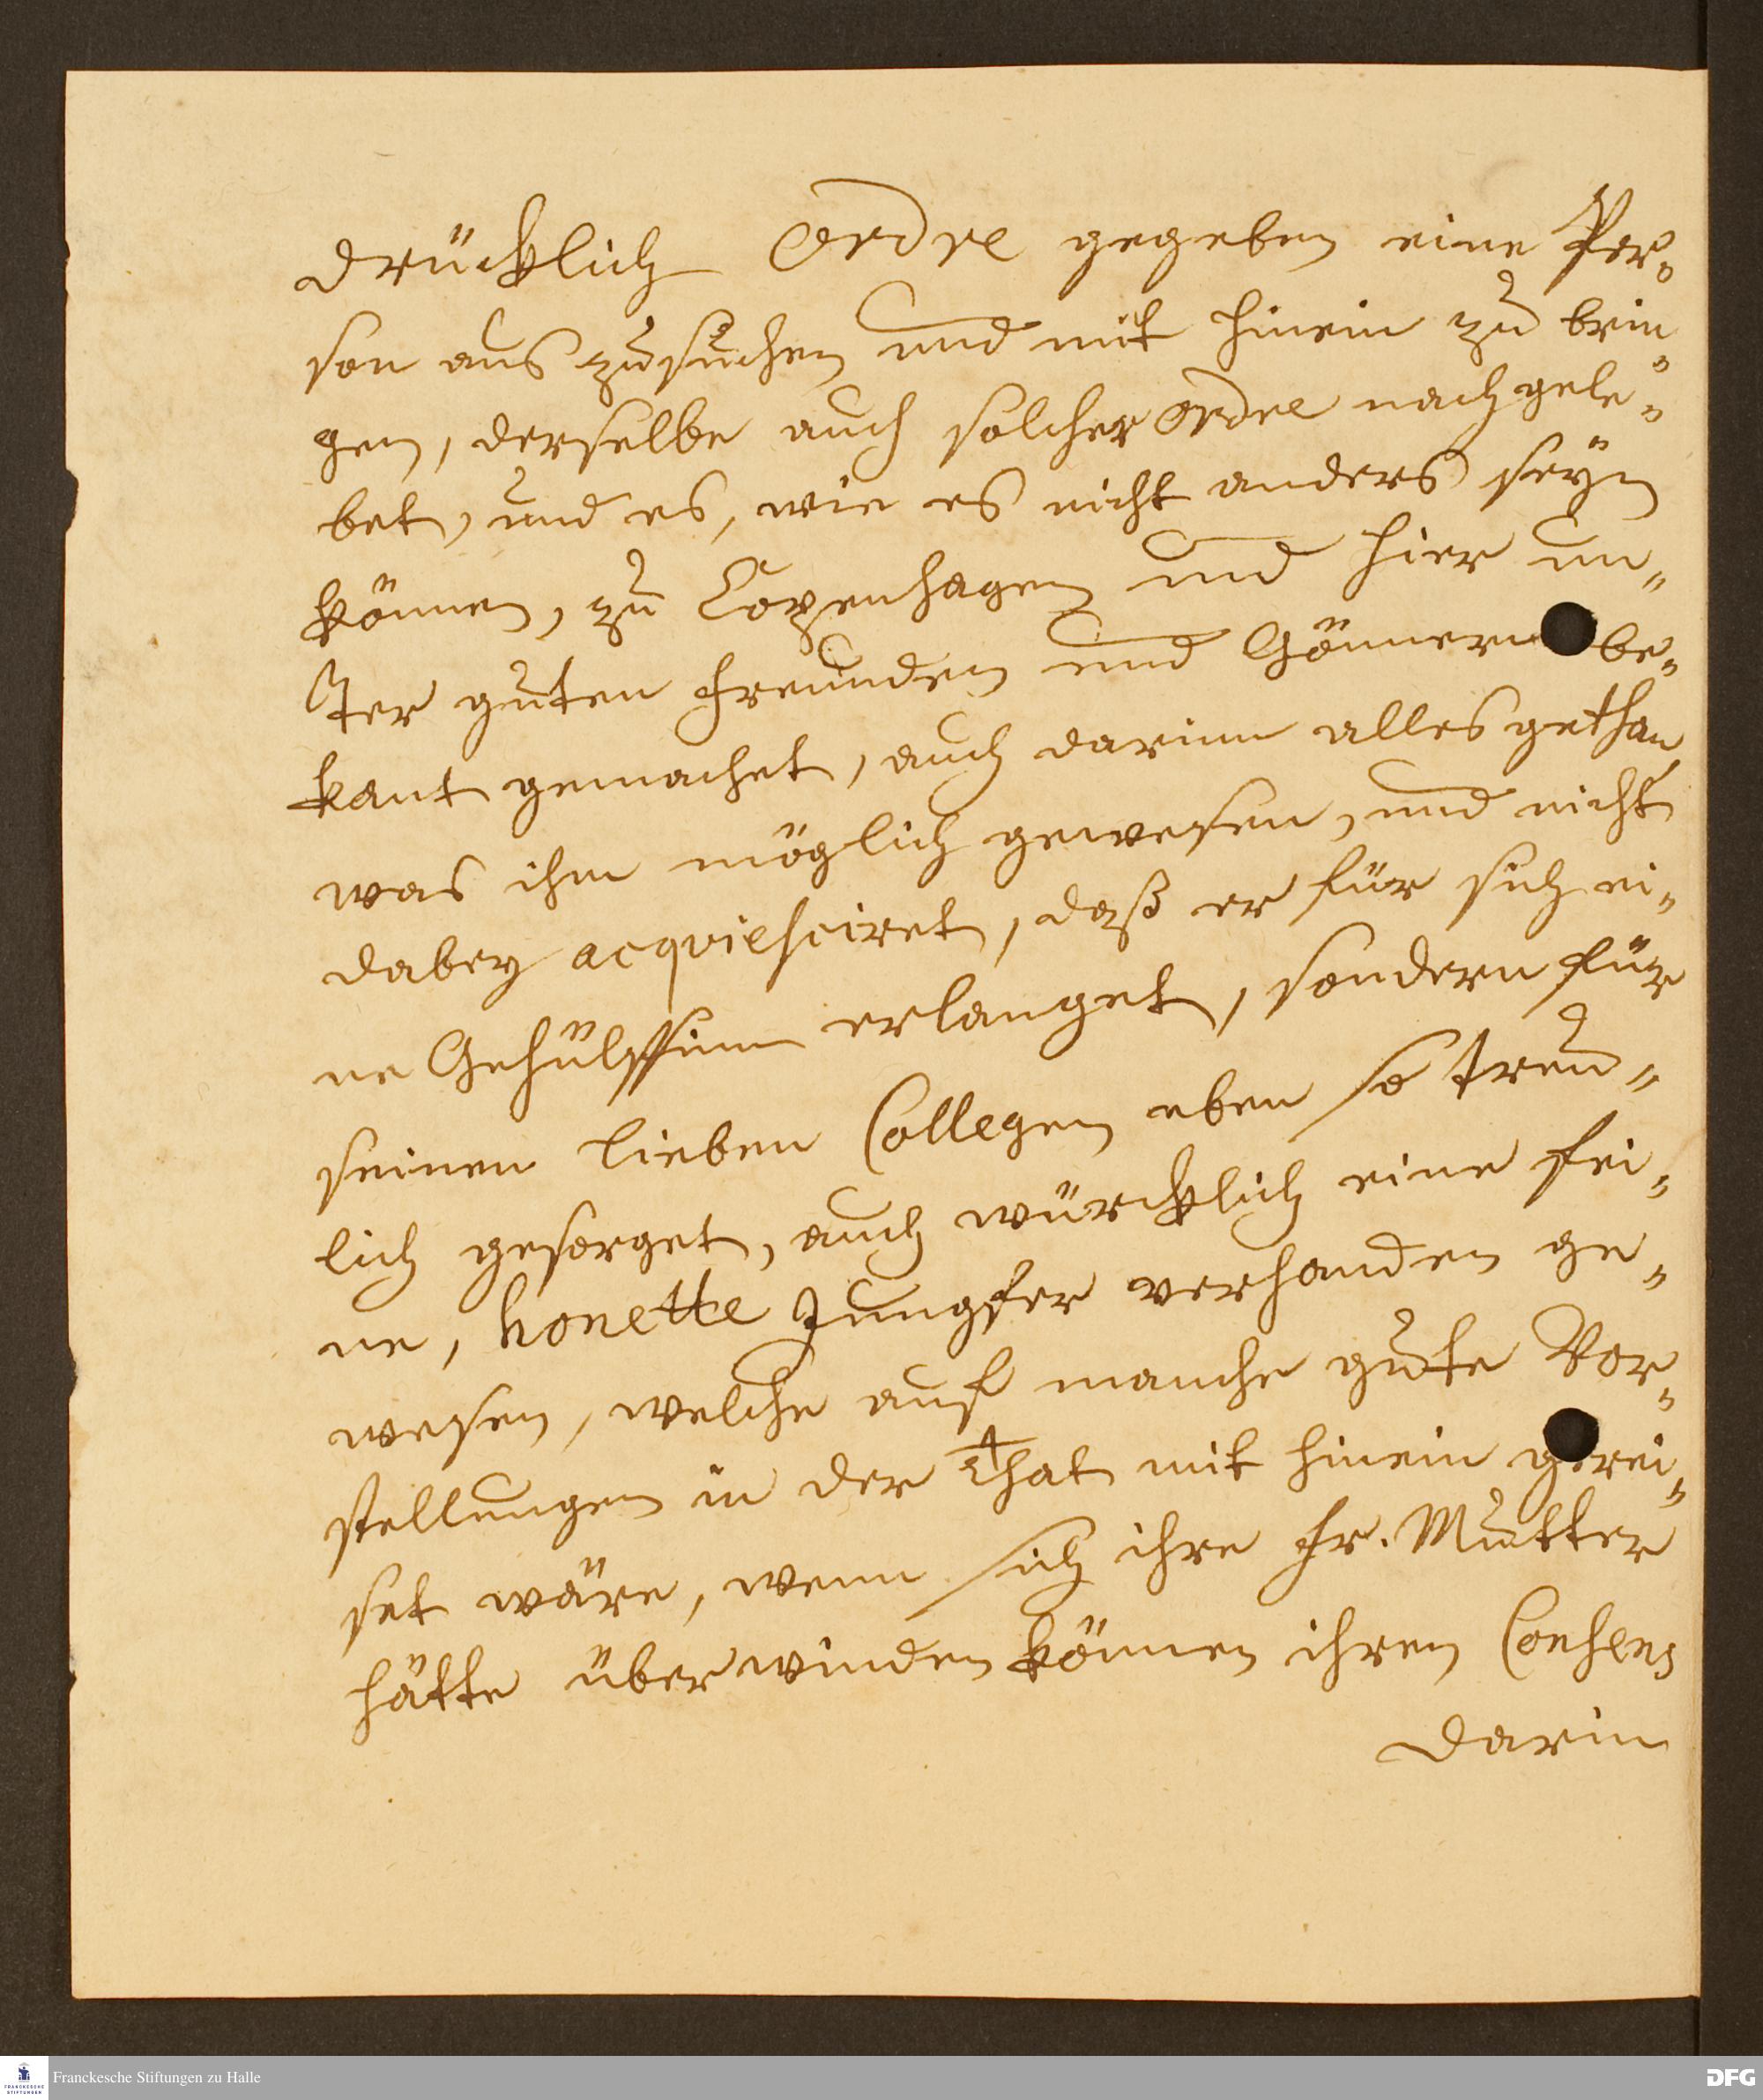 drücklich Ordre gegeben eine Per-
son aus zusuchen und mit hinein zu brin-
gen, derselbe auch solcher Ordre nachgele-
bet, und es, wie es nicht anders seÿn
können, zu Copenhagen und hier un-
ter guten Freunden und Gönnern be-
kant gemachet, auch darinn alles gethan
was ihm möglich gewesen, und nicht
dabey acqviesciret, daß er für sich ei-
ne Gehülffinn erlanget, sondern für
seinen lieben Collegen eben so treu-
lich gesorget, auch würcklich eine fei-
ne, honette Jungfer verhanden ge-
wesen, welche auf manche gute Vor-
stellungen in der That mit hinein gerei-
set wäre, wenn sich ihre Fr. Mutter
hätte überwinden können ihren Consens
darin
Franckesche Stiftungen zu Halle
FRANCKESCHE STIFTUNGEN
DFG